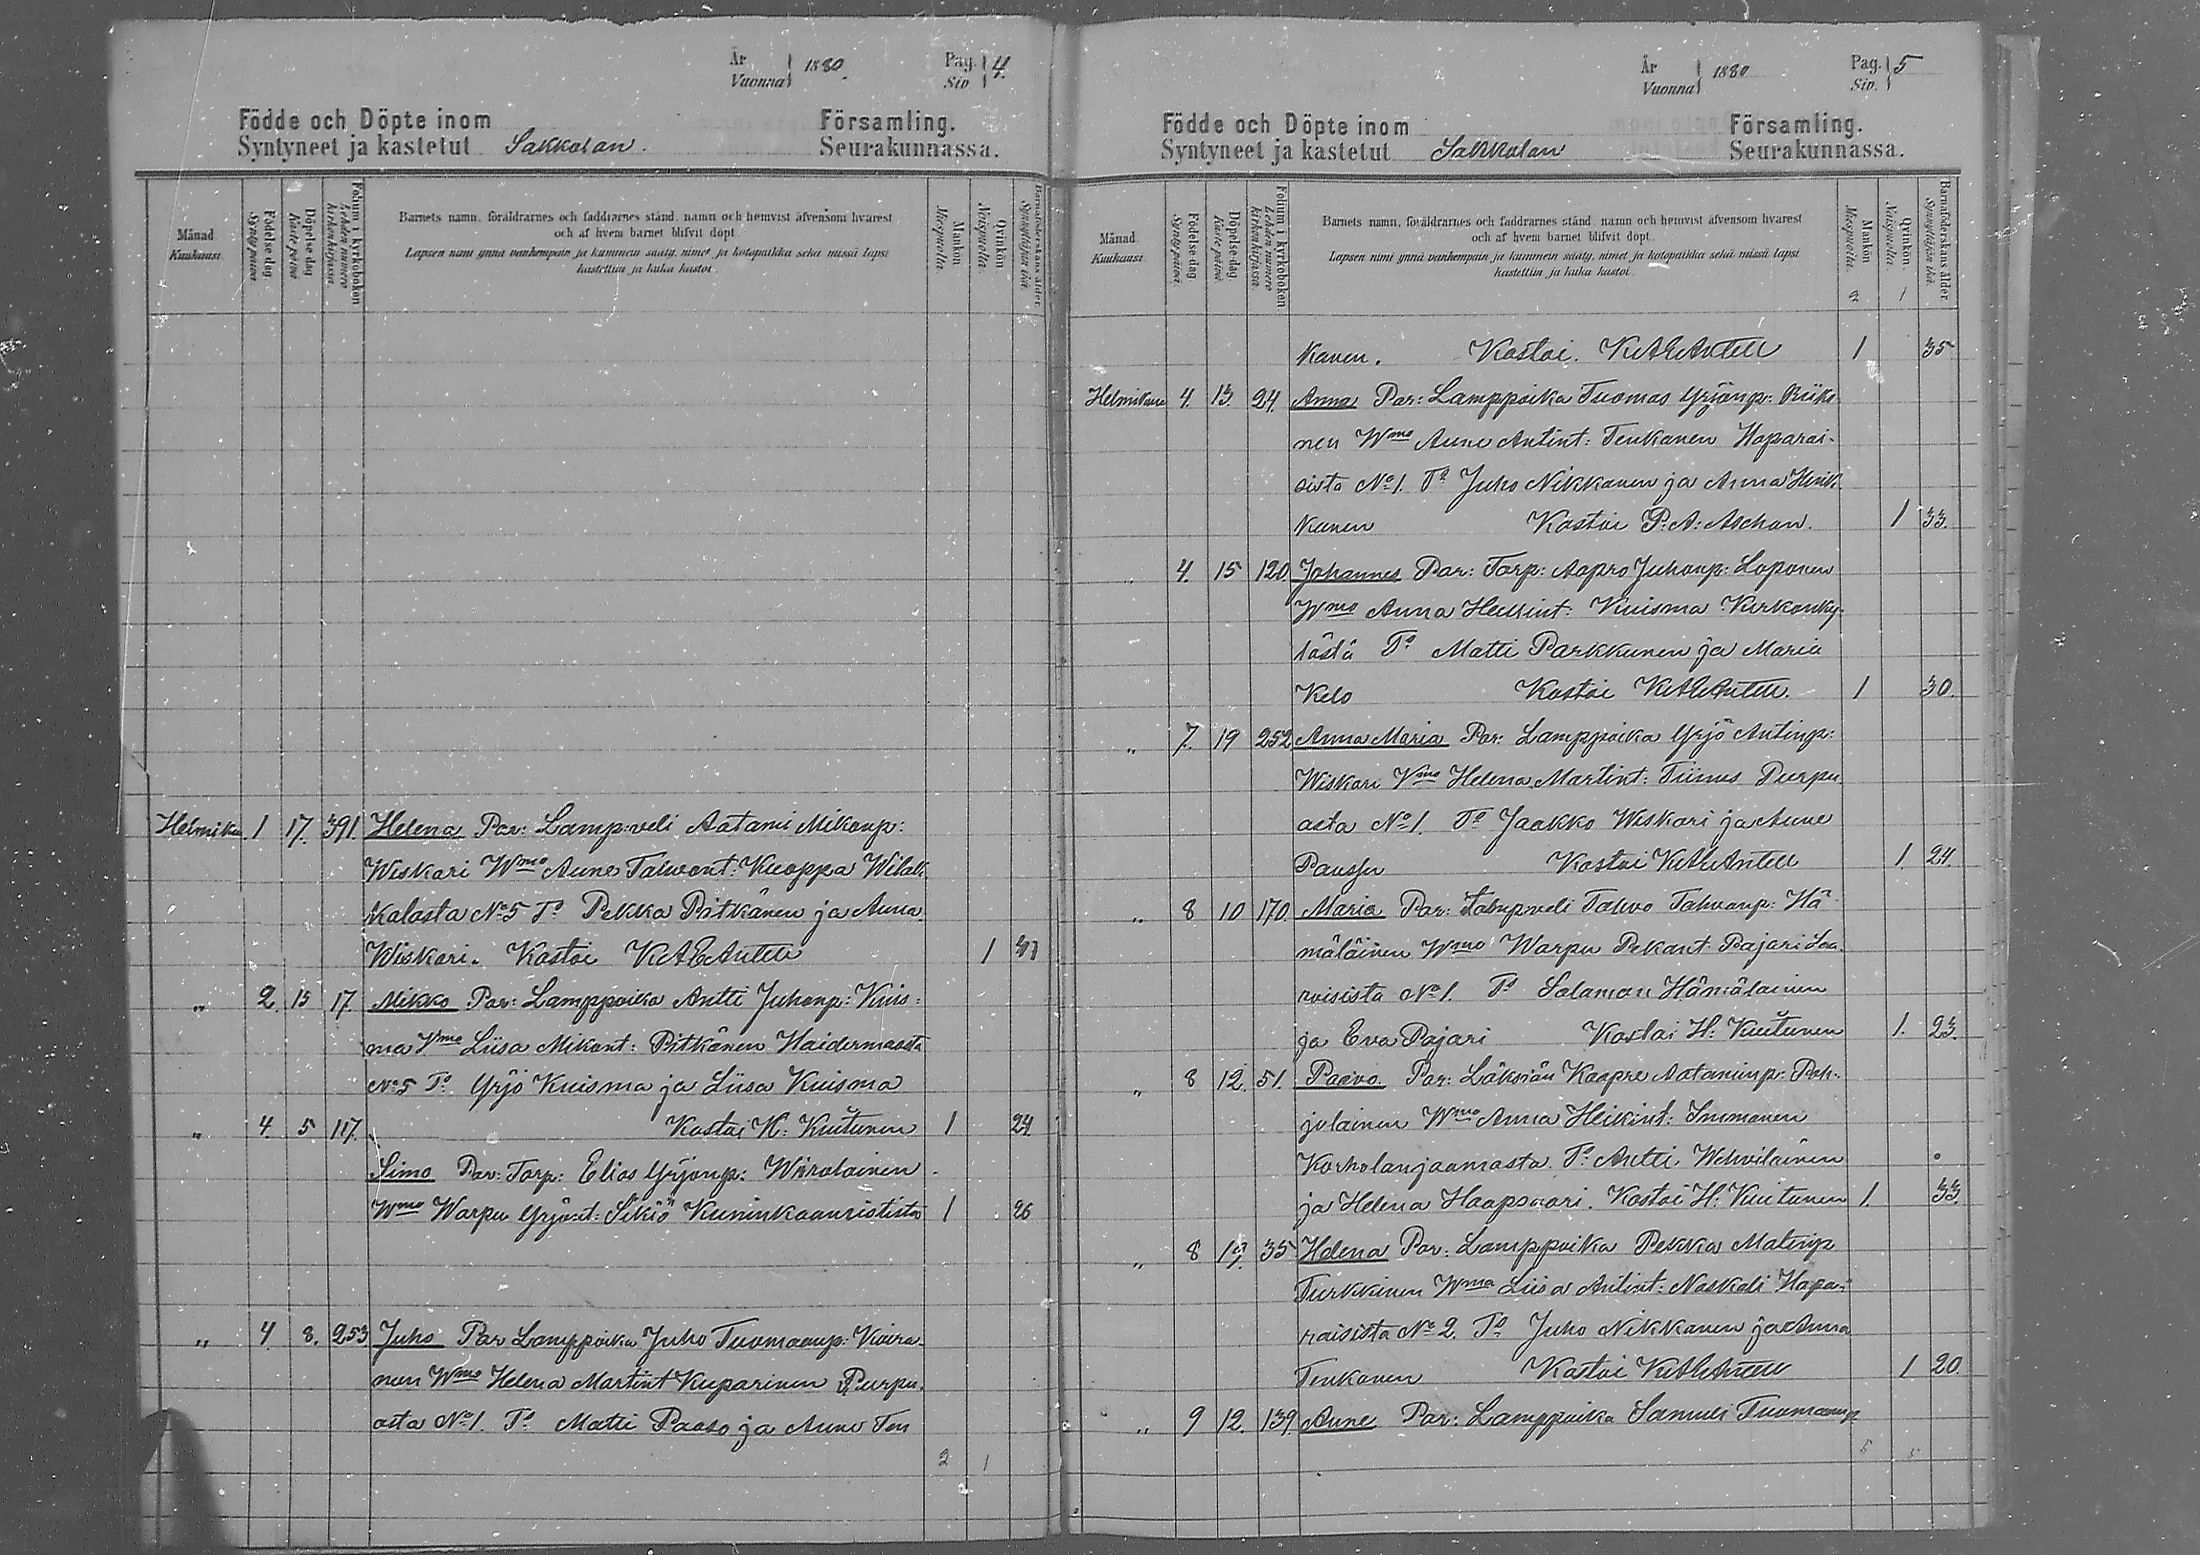 År
Vuonna 1880.
Pag.
Siv. 4.
Födde och Döpte inom Församling.
Syntyneet ja kastetut Sakkolan. Seurakunnassa.
Månad Kuukausi
Födelse dag Syntypäivä
Döpelse dag Kastepäivä
Folium i kyrkoboken Lehden numero kirkonkirjassa
Barnets namn, föräldrarnes och faddrarnes stånd, namn och hemvist äfvensom hvarest
och af hvem barnet blifvit döpt.
Lapsen nimi ynnä vanhempain ja kummein sääty, nimet ja kotopaikka sekä missä lapsi
kastettiin ja kuka kastoi.
Mankön Miespuolia
Qvinkön Naispuolia
Barnaföderskans ålder Synnyttäjän ikä
Helmiku. 1 17. 391. Helena Par: Lamp:veli Aatami Mikonp:
Wiskari Wmo Aune Tahvont: Kuoppa Wilak-
kalasta No 5 To Pekka Pitkänen ja Anna
Wiskari. Kastoi K A E Antell 1
„ 2. 15 17. Mikko Par: Lamppoika Antti Juhonp: Kuis-
ma Vmo Liisa Mikont: Pitkänen Haidermaasta
No 5 To Yrjö Kuisma ja Liisa Kuisma
„ 4. 5 117. Kastoi H: Kuitunen 1 24.
Simo Par: Torp: Elias Yrjönp: Wirolainen
Wmo Warpu Yrjönt: Sikiö Kuninkaanrististä 1 26
„ 4. 8. 253 Juho Par Lamppoika Juho Tuomaanp: Koira-
nen Wmo Helena Martint Kuparinen Purpu-
asta No 1. To Matti Paaso ja Aune Ten
2 1
År
Vuonna 1880
Pag.
Siv. 5
Födde och Döpte inom Församling.
Syntyneet ja kastetut Sakkolan Seurakunnassa.
Månad Kuukausi
Födelse dag. Syntypäivä.
Döpelse dag. Kastepäivä
Folium i kyrkoboken Lehden numero kirkonkirjassa
Barnets namn, föräldrarnes och faddrarnes stånd, namn och hemvist äfvensom hvarest
och af hvem barnet blifvit döpt.
Lapsen nimi ynnä vanhempain ja kummein sääty, nimet ja kotopaikka sekä missä lapsi
kastettiin ja kuka kastoi.
Mankön Miespuolia
Qvinkön. Naispuolia
Barnaföderskans ålder. Synnyttäjän ikä.
2 1
kanen. Kastoi. K A E Antell 1 35
Helmikuu 4. 13. 24. Anna Par: Lamppoika Tuomas Yrjönp: Riiko-
nen Wmo Aune Antint: Tenkanen Haparai-
sista No 1. To Juho Nikkanen ja Anna Hink-
kanen Kastoi P: A: Aschan. 1 33.
„ 4. 15 120. Johannes Par: Torp: Aapro Juhonp: Loponen
Wmo Anna Heikint: Kuisma Kirkonky-
lästä To Matti Parkkunen ja Maria
Kelo Kastoi K A E Antell. 1 30.
„ 7. 19 252. Anna Maria Par: Lamppoika Yrjö Antinp:
Wiskari Vmo Helena Martint: Tiinus Purpu-
asta No 1. To Jaakko Wiskari ja Aune
Paussu Kastoi K A E Antell 1. 24.
„ 8 10 170. Maria Par: Lampveli Tahvo Tahvonp: Hä-
mäläinen Wmo Warpu Pekant: Pajari Lea-
roisista No 1. To Salamon Hämäläinen
ja Eva Pajari Kastoi H: Kuitunen 1. 23.
„ 8 12. 51. Paavo Par: Läksiän Kaapre Aataminp: Poh-
jolainen Wmo Anna Heikint: Immonen
Korholanjaamasta. To Antti Wehviläinen
ja Helena Haapsaari. Kastoi H: Kuitunen 1. 33.
„ 8 35 Helena Par: Lamppoika Pekka Matinp
Turkkinen Wmo Liisa Antint: Naskali Hapa-
raisista No 2. To Juho Nikkanen ja Anna
Tenkanen Kastoi K A E Antell 1 20.
„ 9 12. 139. Aune Par: Lamppoika Samuli Tuomaanp
5 5